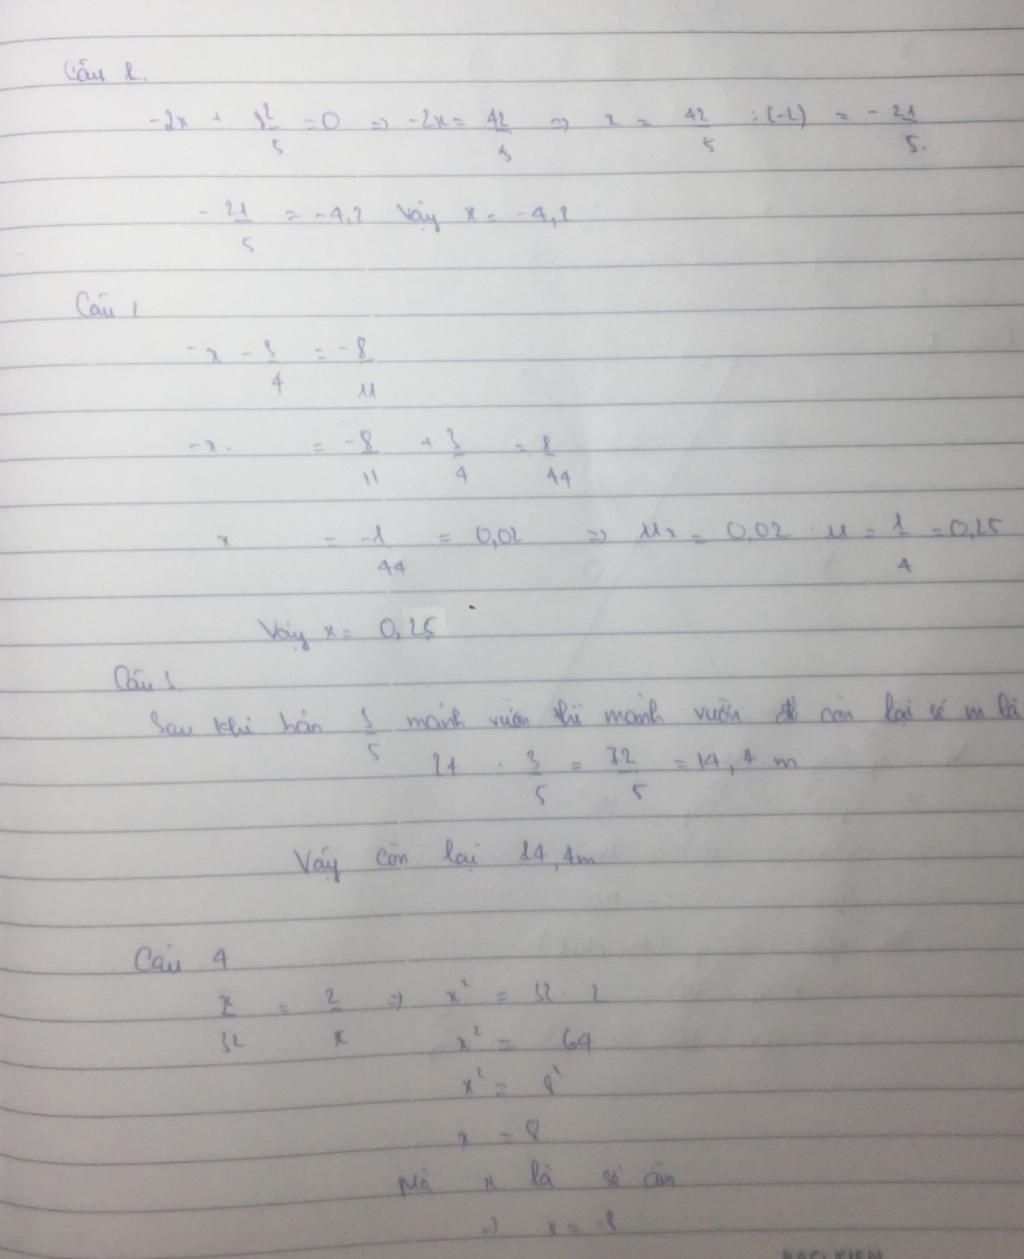 Câu 2.
-2x + 42/5 = 0 => -2x = 42/5 => x = 42/5 : (-2) = - 21/5.
- 21/5 = -4,2 Vậy x = -4,2
Câu 1
-x - 3/4 = -8/11
-x. = -8/11 + 3/4 = 1/44
x = -1/44 = 0,02 => 11x = 0,02 . 11 = 1/4 = 0,25
Vậy x = 0,25
Câu 3
Sau khi bán 3/5 mảnh vườn thì mảnh vườn còn lại số m là
24 . 3/5 = 72/5 = 14,4 m
Vậy còn lại 14,4m
Câu 4
x/32 = 2/x => x² = 32 . 2
x² = 64
x² = 8²
x = 8
Mà x là số
=> x = -8